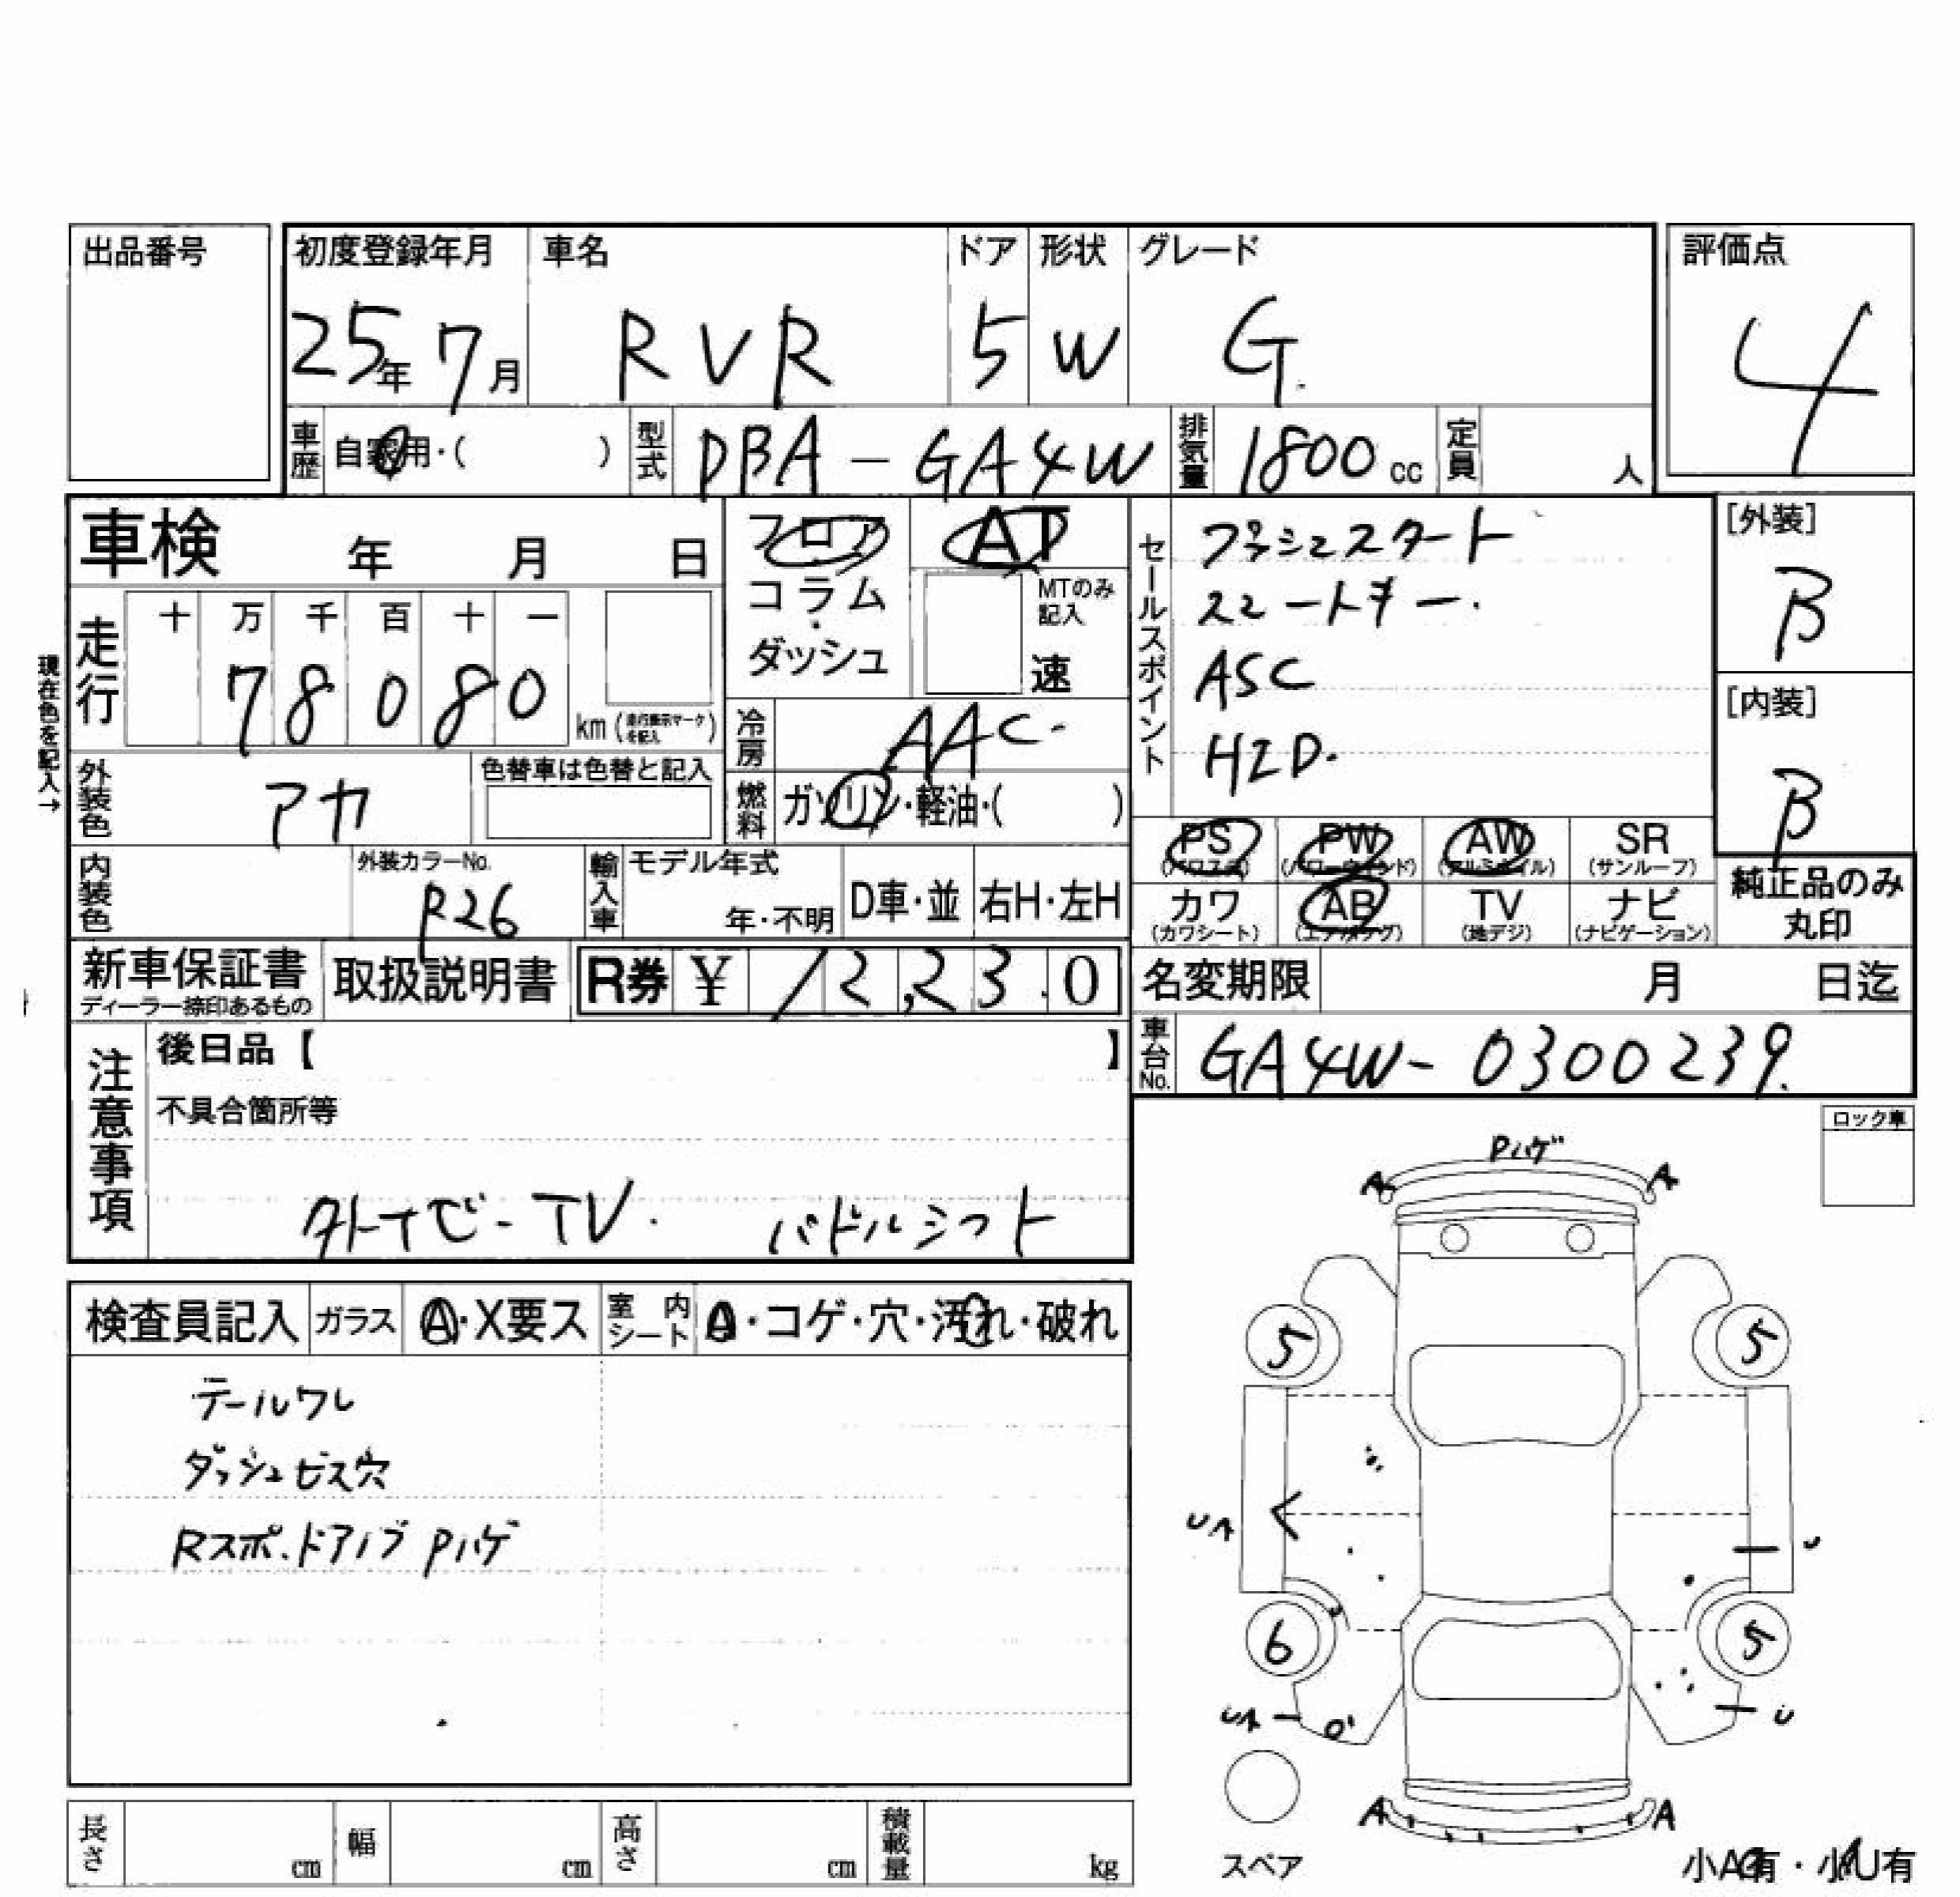 出品番号
初度登録年月 車名 ドア 形状 グレード 評価点
25年 7月 RVR 5 W G. 4
車歴 自家用・( ) 型式 DBA-GA4W 排気量 1800cc 定員 人
車検 年 月 日
フロア
コラム
・
ダッシュ
AT
MTのみ
記入
速
走行
十 万 千 百 十 一
7 8 0 8 0
km(走行表示マークを記入)
現在色を記入→
冷房 AAC
燃料 ガソリン・軽油・( )
外装色 アカ
色替車は色替と記入
内装色
外装カラーNo.
P26
輸入車
モデル年式
年・不明
D車・並 右H・左H
セールスポイント
プッシュスタート
スマートキー.
ASC
HID.
[外装]
B
[内装]
B
PS PW AW SR
(パワステ) (パワーウィンド) (アルミホイル) (サンルーフ)
カワ AB TV ナビ
(カワシート) (エアバッグ) (地デジ) (ナビゲーション)
純正品のみ
丸印
新車保証書
ディーラー捺印あるもの
取扱説明書
R券 ¥ 12,230
名変期限 月 日迄
車台No. GA4W-0300239.
注意事項
後日品【 】
不具合箇所等
外ナビ-TV. パドルシフト
ロック車
検査員記入 ガラス A・X要ス 室内シート A・コゲ・穴・汚れ・破れ
テールワレ
ダッシュビス穴
Rスポ.ドアノブPハゲ
Pハゲ
A A
5 5
UA U
6 5
UA U
A A
スペア
小A有・小U有
長さ cm 幅 cm 高さ cm 積載量 kg